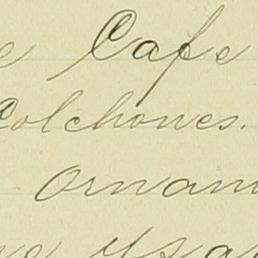 e Cafe
Colchones.
Ornam